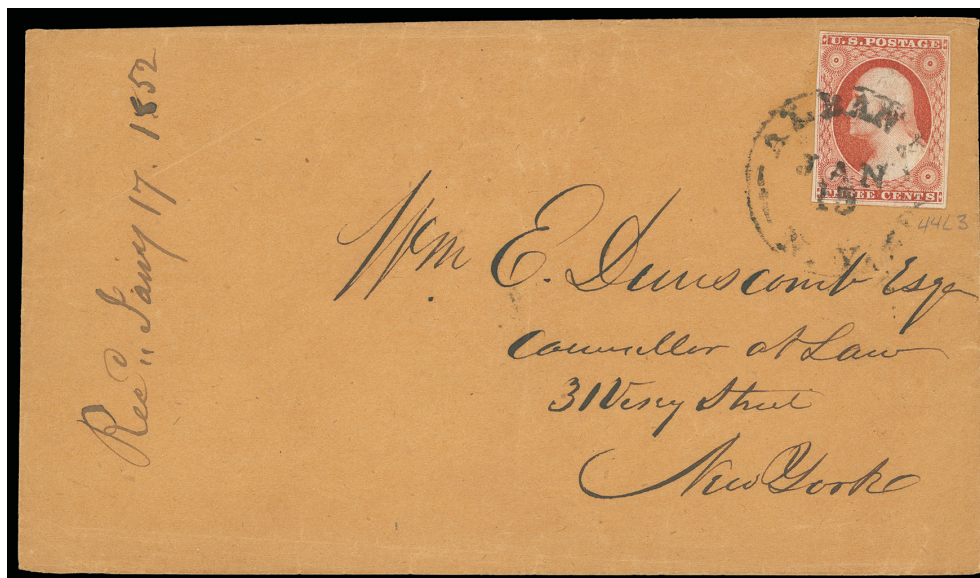 Recd,, Jany 17. 1852
U.S. POSTAGE
THREE CENTS
ALBANY
JAN
15
N.Y.
44L3
Wm E. Dunscomb Esqr
Councellor at Law
31 Vesey Street
New York